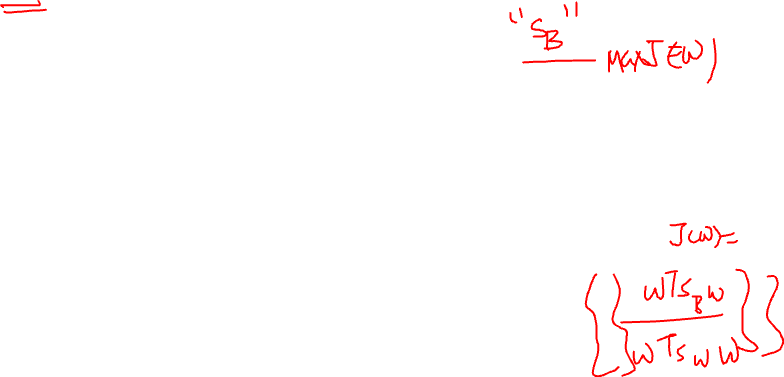 "S_B"
maxJ(W)
J(W)=
{{ WTS_BW / WTS_WW }}